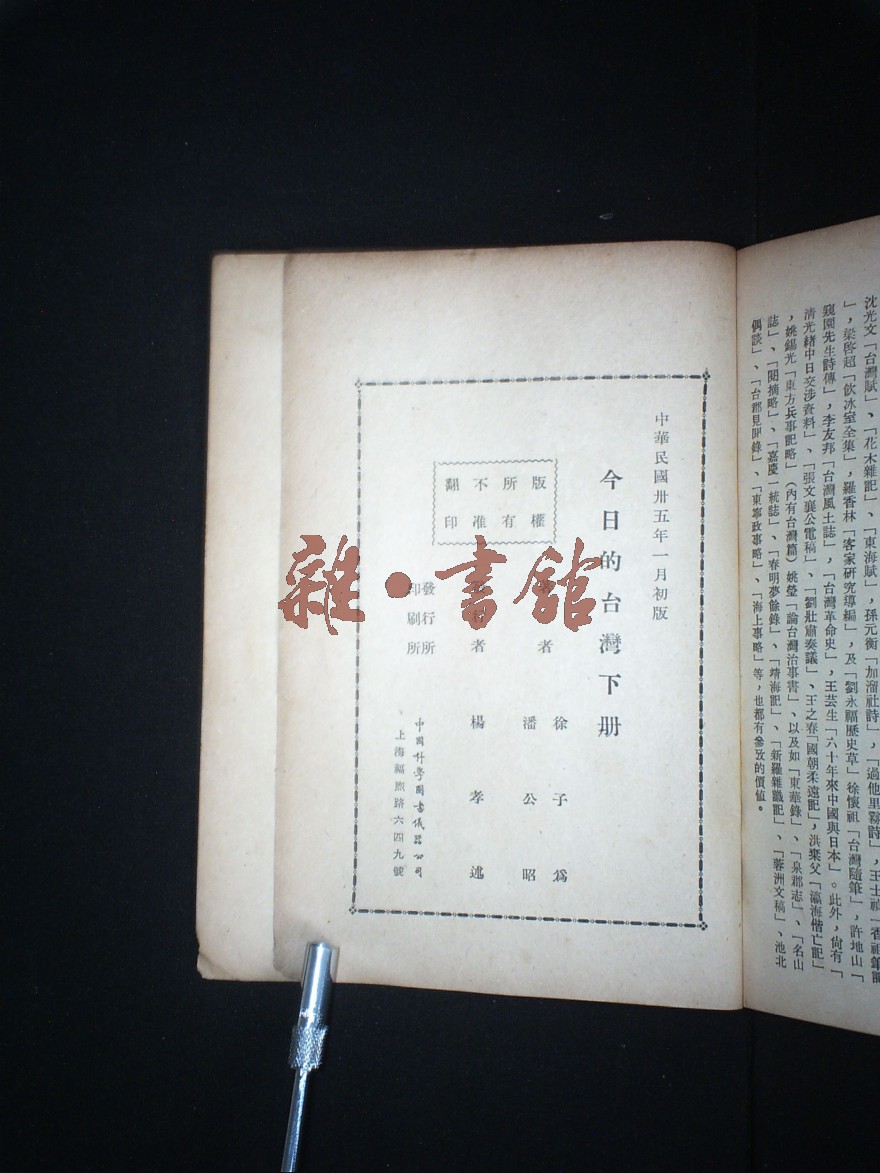 沈光文「台灣賦」、「花木雜記」、「東海賦」，孫元衡「加溜社詩」，「過他里霧詩」，王士禎「香祖筆記
」，梁啓超「飲冰室全集」，羅香林「客家研究導編」，及「劉永福歷史草」徐懷祖「台灣隨筆」，許地山「
窺園先生詩傳」，李友邦「台灣風土誌」，「台灣革命史」，王芸生「六十年來中國與日本」。此外，尙有「
清光緒中日交涉資料」、「張文襄公電稿」、「劉壯肅奏議」、王之春「國朝柔遠記」，洪棄父「瀛海偕亡記」
，姚錫光「東方兵事記略」（內有台灣篇）姚瑩「論台灣治事書」、以及如「東華錄」、「泉郡志」、「名山
誌」、「閩摘略」、「嘉慶一統誌」、「春明夢餘錄」、「靖海記」、「新羅雜識記」、「蓉洲文稿」、池北
偶談」、「台郡見聞錄」、「東寧政事略」、「海上事略」等，也都有參攷的價値。
中華民國卅五年一月初版
今日的台灣下册
版權
所有
不准
翻印
者 徐子爲
潘公昭
者 楊孝述
發行所
印刷所
中國科學圖書儀器公司
上海福煦路六四九號
雜·書館